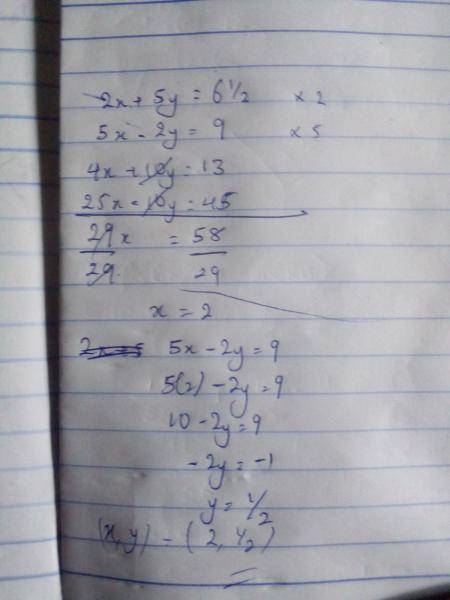 2x + 5y = 6 1/2 × 2
5x - 2y = 9 × 5
4x + 10y = 13
25x - 10y = 45
29x = 58
29 29
x = 2
5x - 2y = 9
5(2) - 2y = 9
10 - 2y = 9
- 2y = -1
y = 1/2
(x, y) = (2, 1/2)